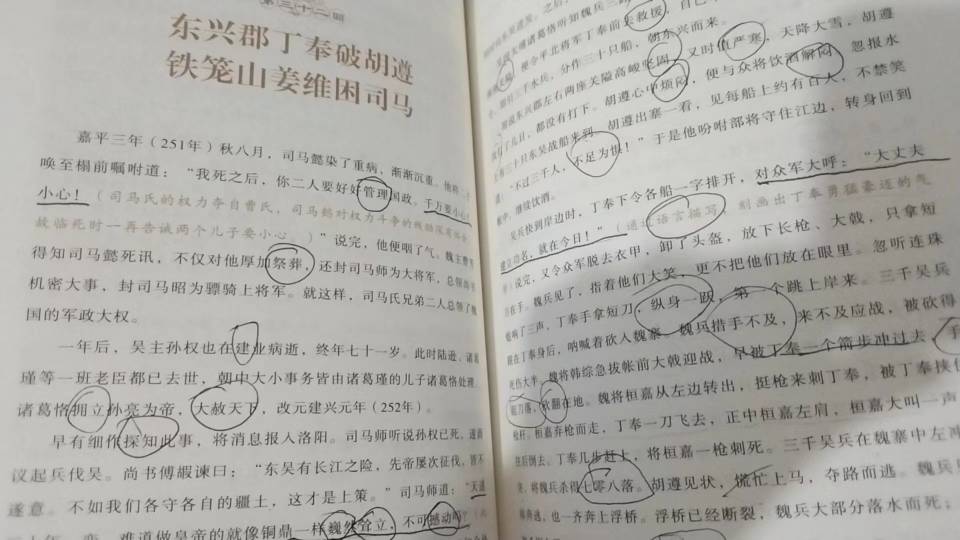 第三十二回
东兴郡丁奉破胡遵
铁笼山姜维困司马
嘉平三年（251年）秋八月，司马懿染了重病，渐渐沉重。他将二子
唤至榻前嘱咐道：“我死之后，你二人要好好管理国政。千万要小心！
小心！（司马氏的权力夺自曹氏，司马懿对权力斗争的残酷深有体会
故临死时一再告诫两个儿子要小心。）”说完，他便咽了气。魏主曹芳
得知司马懿死讯，不仅对他厚加祭葬，还封司马师为大将军，总领尚书
机密大事，封司马昭为骠骑上将军。就这样，司马氏兄弟二人总领了魏
国的军政大权。
一年后，吴主孙权也在建业病逝，终年七十一岁。此时陆逊、诸葛
瑾等一班老臣都已去世，朝中大小事务皆由诸葛瑾的儿子诸葛恪处理。
诸葛恪拥立孙亮为帝，大赦天下，改元建兴元年（252年）。
早有细作探知此事，将消息报入洛阳。司马师听说孙权已死，遂商
议起兵伐吴。尚书傅嘏谏曰：“东吴有长江之险，先帝屡次征伐，皆不
遂意。不如我们各守各自的疆土，这才是上策。”司马师道：“天道
难道做皇帝的就像铜鼎一样巍然耸立，不可撼动吗？
吴太傅诸葛恪听知魏兵三
便令平北将军丁奉前去救援，自己
三千水兵，分作三十只船，朝东兴而来。
说东兴郡左右两座关隘高峻坚固，又时值严寒，天降大雪，胡遵
了几日，都没有打下。胡遵心中烦闷，便与众将饮酒解闷。忽报水
三十只东吴战船来到。胡遵出寨一看，见每船上约有百人，不禁笑
“不过三千人，不足为惧！”于是他吩咐部将守住江边，转身回到
帐中，继续饮酒。
吴兵快到岸边时，丁奉下令各船一字排开，对众军大呼：“大丈夫
建立功名，就在今日！”（通过语言描写，刻画出丁奉勇猛豪迈的气
说完，又令众军脱去衣甲，卸了头盔，放下长枪、大戟，只拿短
在手。魏兵见了，指着他们大笑，更不把他们放在眼里。忽听连珠
炮响了三声，丁奉手拿短刀，纵身一跃，第一个跳上岸来。三千吴兵
跟在丁奉身后，呐喊着砍人魏寨。魏兵措手不及，来不及应战，被砍得
死伤大半。魏将韩综急拔帐前大戟迎战，早被丁奉一个箭步冲过去，手
起刀落，砍翻在地。魏将桓嘉从左边转出，挺枪来刺丁奉，被丁奉挟住
枪杆，桓嘉弃枪而走，丁奉一刀飞去，正中桓嘉左肩，桓嘉大叫一声
往后倒去。丁奉几步赶上，将桓嘉一枪刺死。三千吴兵在魏寨中左冲
将魏兵杀得七零八落。胡遵见状，慌忙上马，夺路而逃。魏兵见
奔逃，也一齐奔上浮桥。浮桥已经断裂，魏兵大部分落水而死；